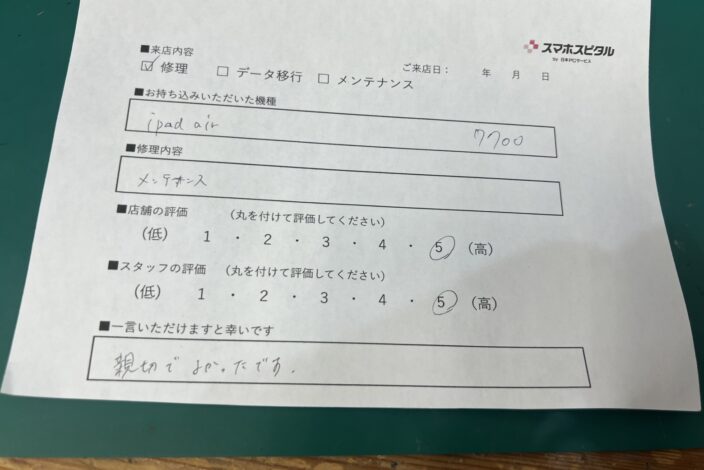 スマホスピタル
by 日本PCサービス
■来店内容
ご来店日： 年 月 日
☑ 修理 □ データ移行 □ メンテナンス
■お持ち込みいただいた機種
ipad air 7700
■修理内容
メンテナンス
■店舗の評価 （丸を付けて評価してください）
（低） 1 ・ 2 ・ 3 ・ 4 ・ 5 （高）
■スタッフの評価 （丸を付けて評価してください）
（低） 1 ・ 2 ・ 3 ・ 4 ・ 5 （高）
■一言いただけますと幸いです
親切でよかったです.